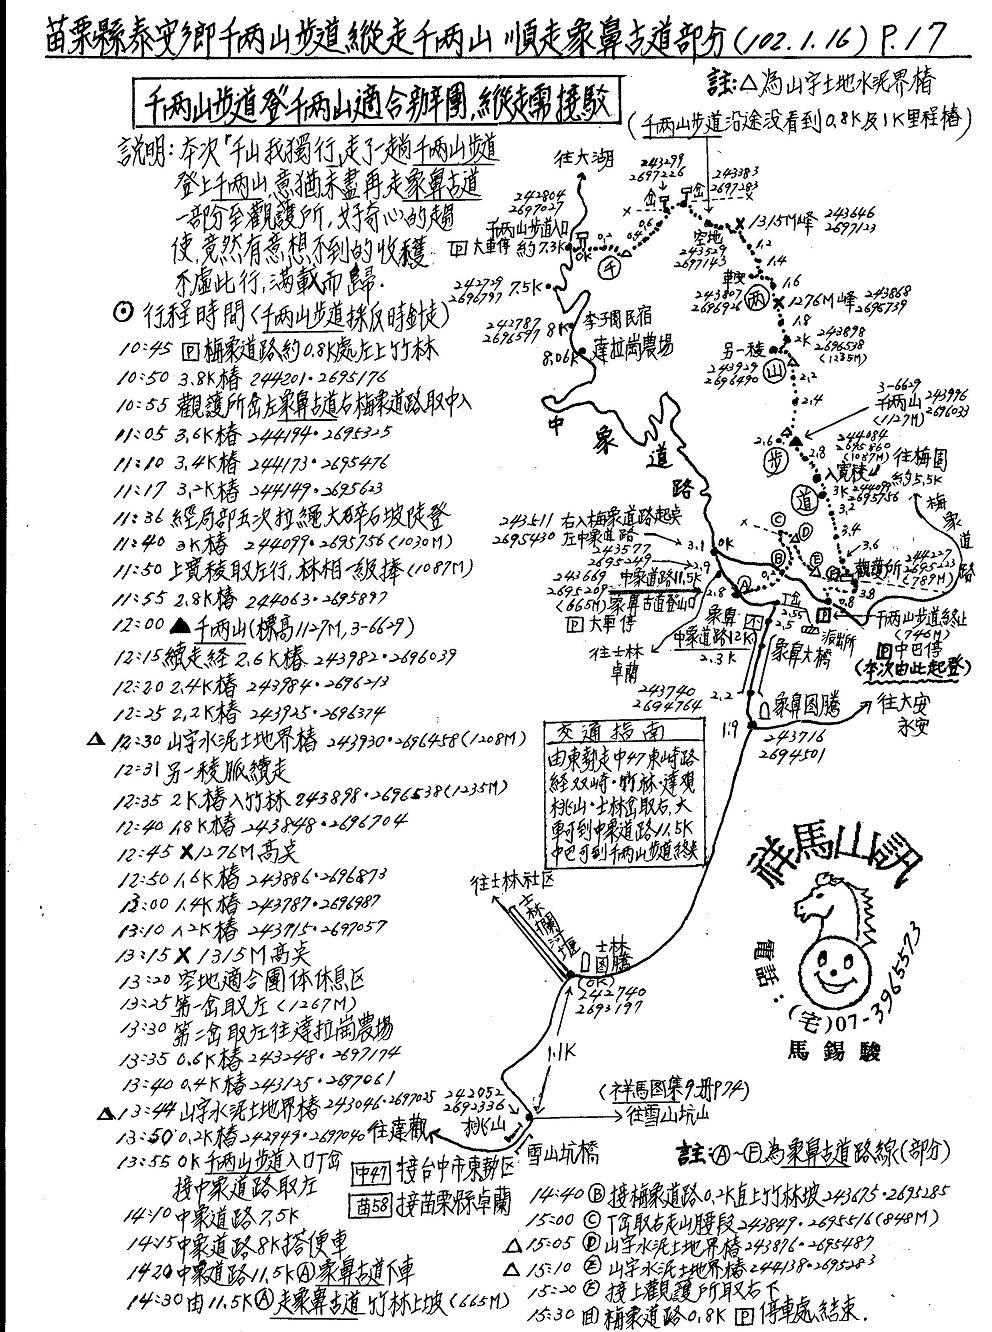 苗栗縣泰安鄉千两山步道縱走千两山順走象鼻古道部分(102.1.16) P.17
千两山步道登千两山適合辦團,縱走需接駁
註:△為山字土地水泥界樁
(千两山步道沿途没看到0.8K及1K里程樁)
說明:本次「千山我獨行」走了一趟千两山步道
登上千两山,意猶未盡再走象鼻古道
一部分至觀護所,好奇心的趨
使,竟然有意想不到的收穫
不虛此行,滿載而歸.
⊙ 行程時間(千两山步道採反時針走)
10:45 P 梅象道路約0.8K處左上竹林
10:50 3.8K樁 244201·2695176
10:55 觀護所岔左象鼻古道右梅象道路取中入
11:05 3.6K樁 244194·2695325
11:10 3.4K樁 244173·2695476
11:17 3.2K樁 244149·2695623
11:36 經局部五次拉繩大碎石坡陡登
11:40 3K樁 244099·2695756(1030M)
11:50 上寬稜取左行,林相一級棒(1087M)
11:55 2.8K樁 244063·2695897
12:00 ▲千两山(標高1127M,3-6629)
12:15 續走経 2.6K樁 243982·2696039
12:20 2.4K樁 243984·2696213
12:25 2.2K樁 243925·2696374
△ 12:30 山字水泥土地界樁 243930·2696458(1208M)
12:31 另一稜脈續走
12:35 2K樁入竹林 243898·2696538(1235M)
12:40 1.8K樁 243848·2696704
12:45 X1276M高点
12:50 1.6K樁 243886·2696873
13:00 1.4K樁 243787·2696987
13:10 1.2K樁 243715·2697057
13:15 X1315M高点
13:20 空地適合團体休息区
13:25 第一岔取左(1267M)
13:30 第二岔取左往達拉崗農場
13:35 0.6K樁 243248·2697174
13:40 0.4K樁 243125·2697061
△ 13:44 山字水泥土地界樁 243046·2697025
13:50 0.2K樁 242949·2697040
13:55 0K千两山步道入口丁岔
接中象道路取左
14:10 中象道路7.5K
14:15 中象道路8K搭便車
1420 中象道路11.5K Ⓐ象鼻古道下車
14:30 由11.5KⒶ走象鼻古道竹林上坡(665M)
往大湖
242804
2697027
千两山步道入口
P 大車停 約7.3K
0K
0.2
0.4
0.6
243299
2697226
岔
岔
243383
2697283
空地
243529
2697143
1315M峰 243646
2697123
1.2
1.4
車安
243807
2696926
1.6
1276M峰 243868
2696739
1.8
2K 243898
2696538
(1235M)
另一稜
243929
2696490
千
两
山
步
道
2.2
2.4
3-6629
千两山
(1127M)
243996
2696033
2.6
2.8
244084
2695860
(1087M)
入寬稜
3K 244099
2695756
3.2
3.4
3.6
3.8
往梅園
約5.5K
梅象道路
觀護所
244227
2695223
(789M)
242729
2696797 7.5K
242787
2696597 8K
8.06K
李子園民宿
達拉崗農場
中象道路
243511
2695430
右入梅象道路起点
左中象道路
3.1
0K
243577
2695249
2.9
243669
2695209
(665M)
中象道路11.5K
象鼻古道登山口
P 大車停
2.8
Ⓐ
Ⓑ
Ⓒ
Ⓓ
Ⓔ
0.8
P
丁岔
2.55
2.5
派出所
千两山步道終止
(746M)
P 中巴停
(本次由此起登)
象鼻
中象道路12K
2.3K
往士林
卓蘭
象鼻大橋
243740
2694764
2.2
象鼻圖騰
往大安
永安
1.9
243716
2694501
交通指南
由東勢走中47東崎路
経双崎·竹林·達观
桃山·士林岔取右,大
車可到中象道路11.5K
中巴可到千两山步道終点
往士林社区
士林攔河堰
士林
图騰
(0K)
242740
2693197
1.1K
242052
2692336
桃山
往達觀
(祥馬图集9册P74)
往雪山坑山
雪山坑橋
中47 接台中市東勢区
苗58 接苗栗縣卓蘭
祥馬山訊
電話:(宅)07-3965573
馬錫駿
註:Ⓐ~Ⓕ為象鼻古道路線(部分)
14:40 Ⓑ 接梅象道路0.2K直上竹林坡 243675·2695285
15:00 Ⓒ 丁岔取右走山腰段 243849·2695516(848M)
△ 15:05 Ⓓ 山字水泥土地界樁 243876·2695487
△ 15:10 Ⓔ 山字水泥土地界樁 244138·2695283
15:20 Ⓕ 接上觀護所取右下
15:30 回 梅象道路0.8K P 停車處結束.